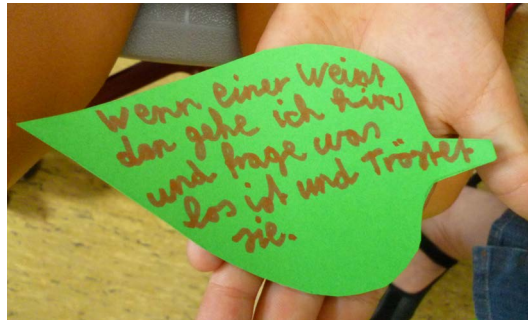 Wenn einer Weint
dan gehe ich hin
und frage was
los ist und Tröstet
sie.